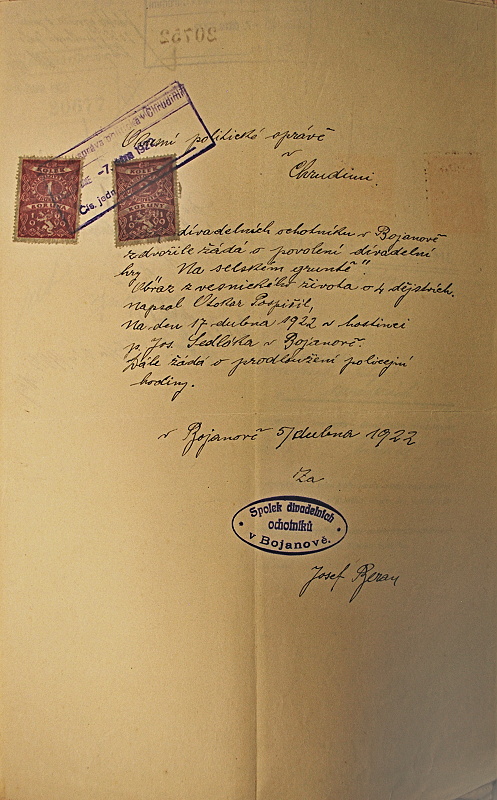 20752
správa politická v Chrudimi
-7. 1922
Čís. jedn.
KOLEK
1
KORUNA
KOLEK
KORUNY
politické správě
v
Chrudimi.
divadelních ochotníků v Bojanově
zdvořile žádá o povolení divadelní
hry "Na selském gruntě".
Obraz z vesnického života o 4 dějstvích.
napsal Otokar Pospíšil,
Na den 17 dubna 1922 v hostinci
p. Jos. Sedláka v Bojanově.
Dále žádá o prodloužení policejní
hodiny.
v Bojanově 5/dubna 1922
Za
Spolek divadelních
ochotníků
v Bojanově.
Josef Beran